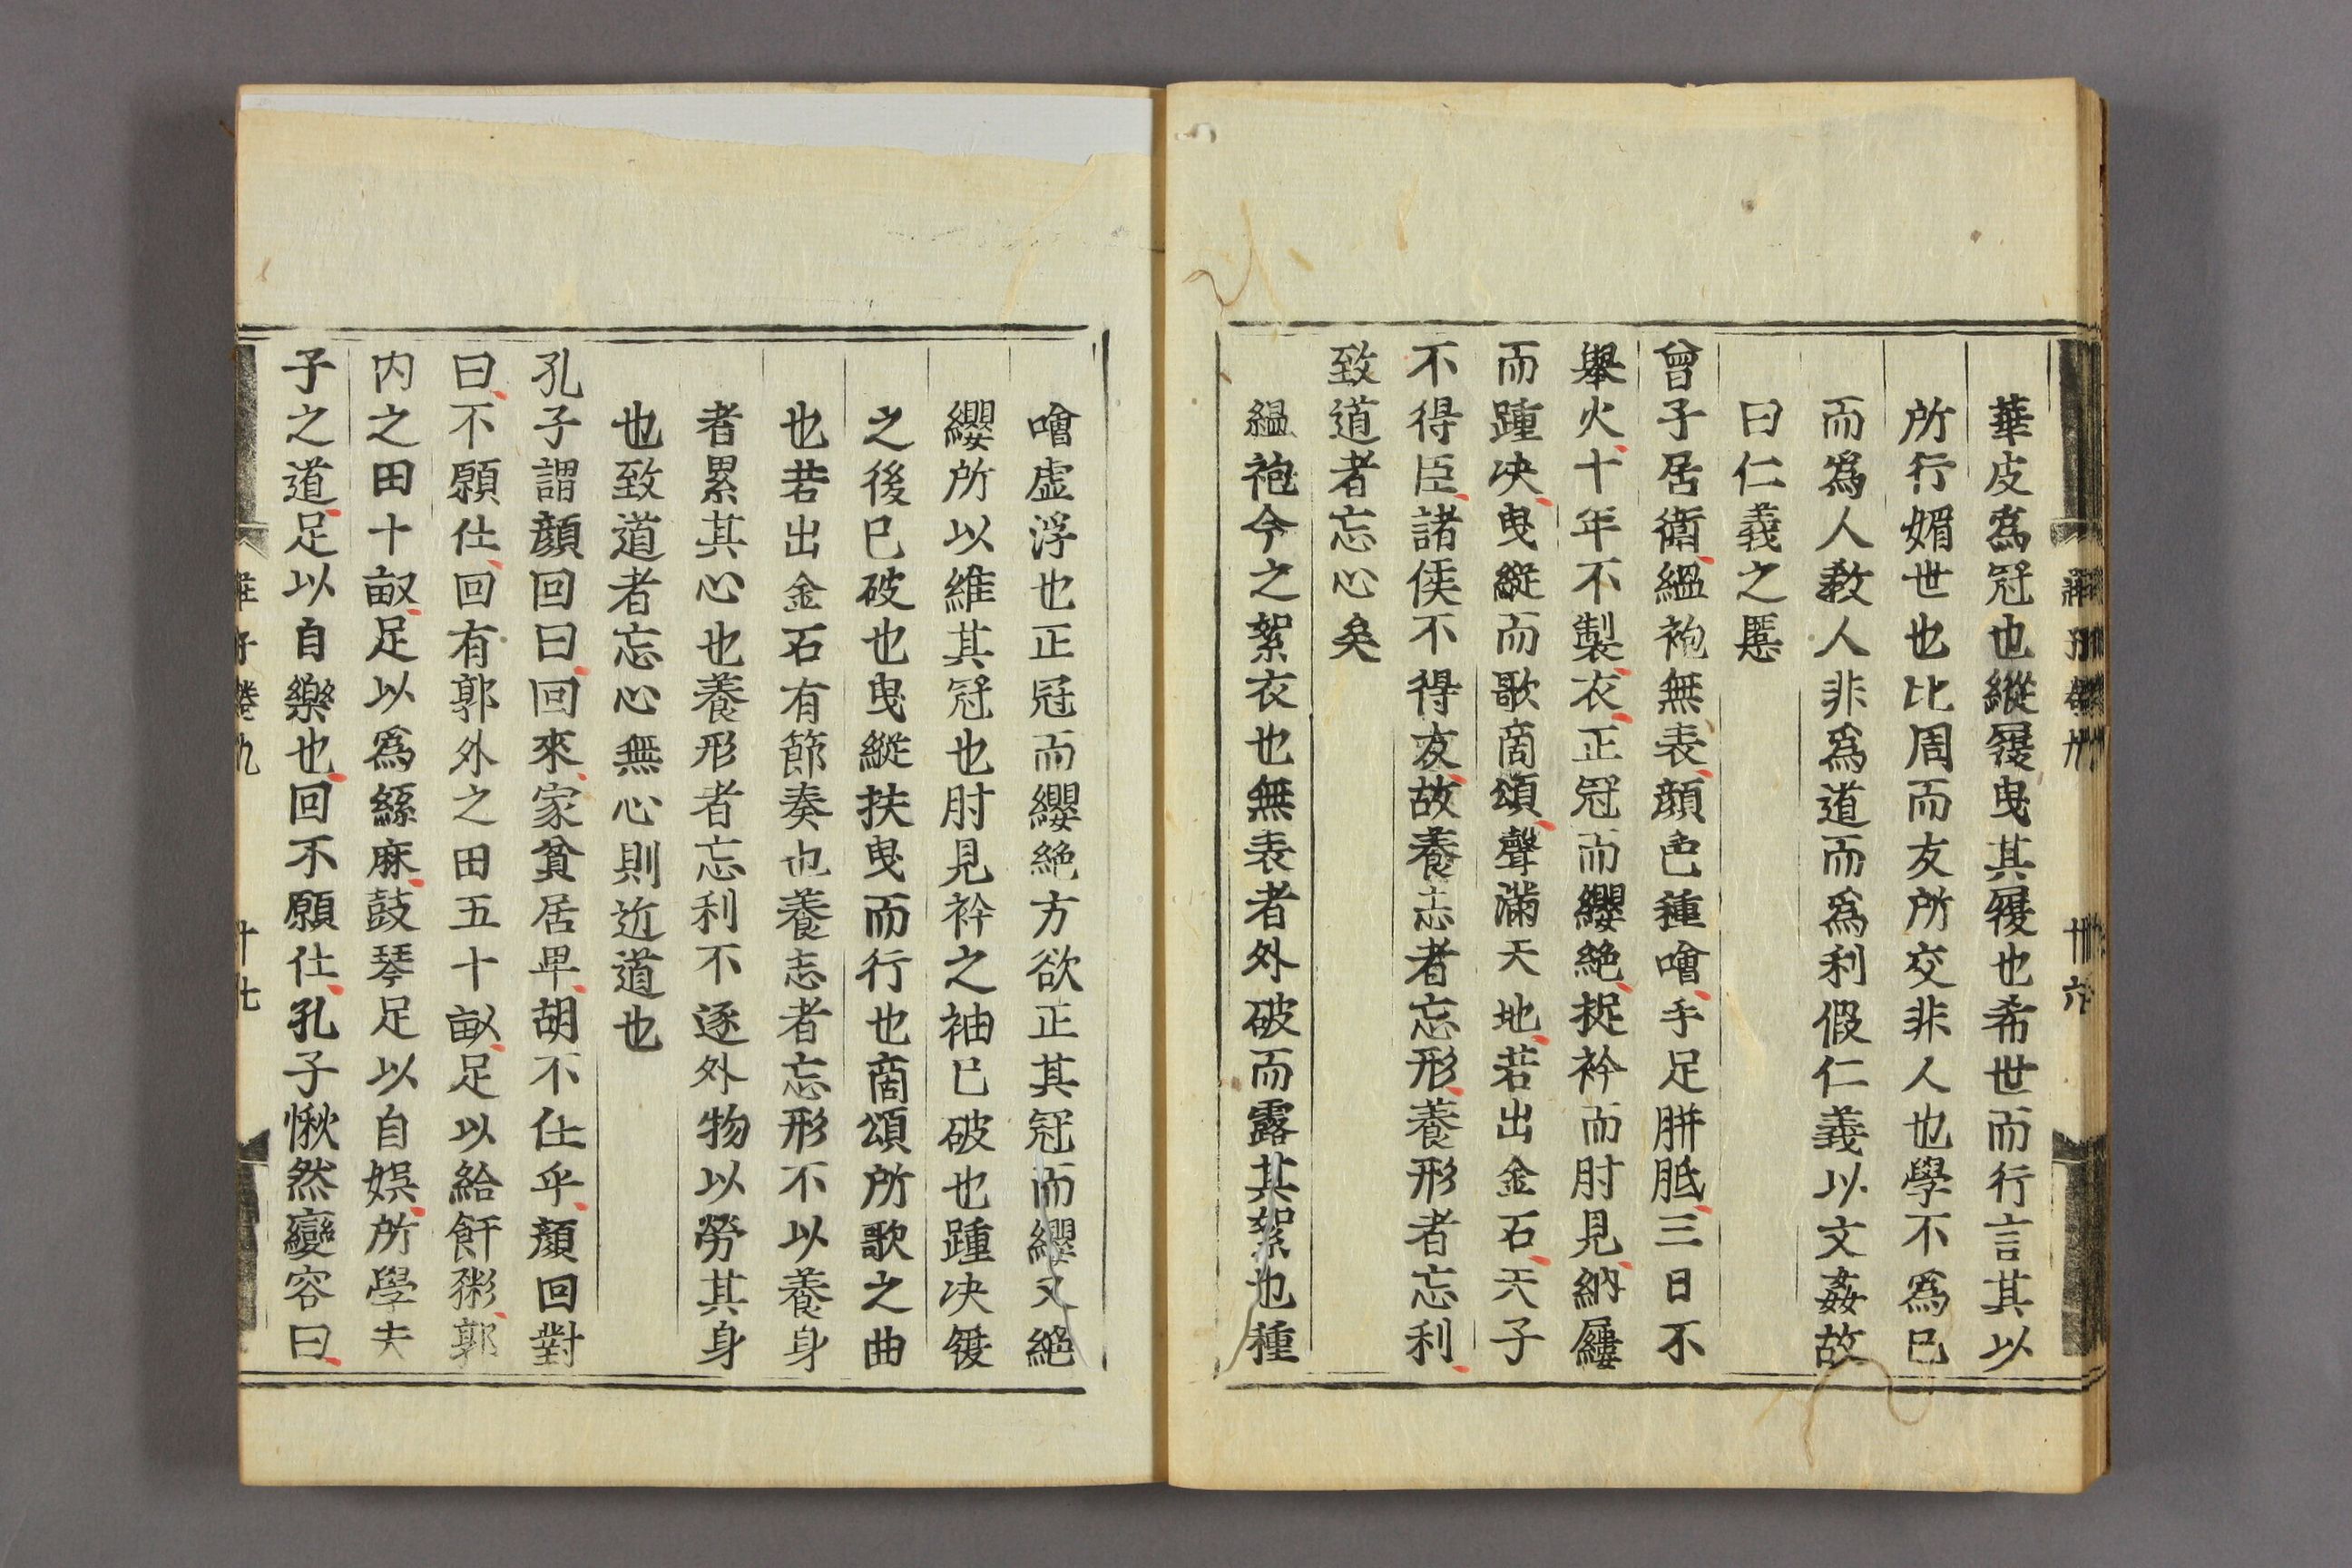 華皮爲冠也縰履曳其履也希世而行言其以
所行媚世也比周而友所交非人也學不爲已
而爲人教人非爲道而爲利假仁義以文姦故
曰仁義之慝
曾子居衛縕袍無表顔色種噲手足胼胝三日不
舉火十年不製衣正冠而纓絶捉衿而肘見納屨
而踵决曳縰而歌商頌聲滿天地若出金石天子
不得臣諸侯不得友故養志者忘形養形者忘利
致道者忘心矣
縕袍今之絮衣也無表者外破而露其絮也種
噲虛浮也正冠而纓絶方欲正其冠而纓又絶
纓所以維其冠也肘見衿之袖已破也踵决履
之後已破也曳縰扶曳而行也商頌所歌之曲
也若出金石有節奏也養志者忘形不以養身
者累其心也養形者忘利不逐外物以勞其身
也致道者忘心無心則近道也
孔子謂顔回曰回來家貧居卑胡不仕乎顔回對
曰不願仕回有郭外之田五十畝足以給飦粥郭
内之田十畝足以爲絲麻鼓琴足以自娛所學夫
子之道足以自樂也回不願仕孔子愀然變容曰
莊子卷九 十七